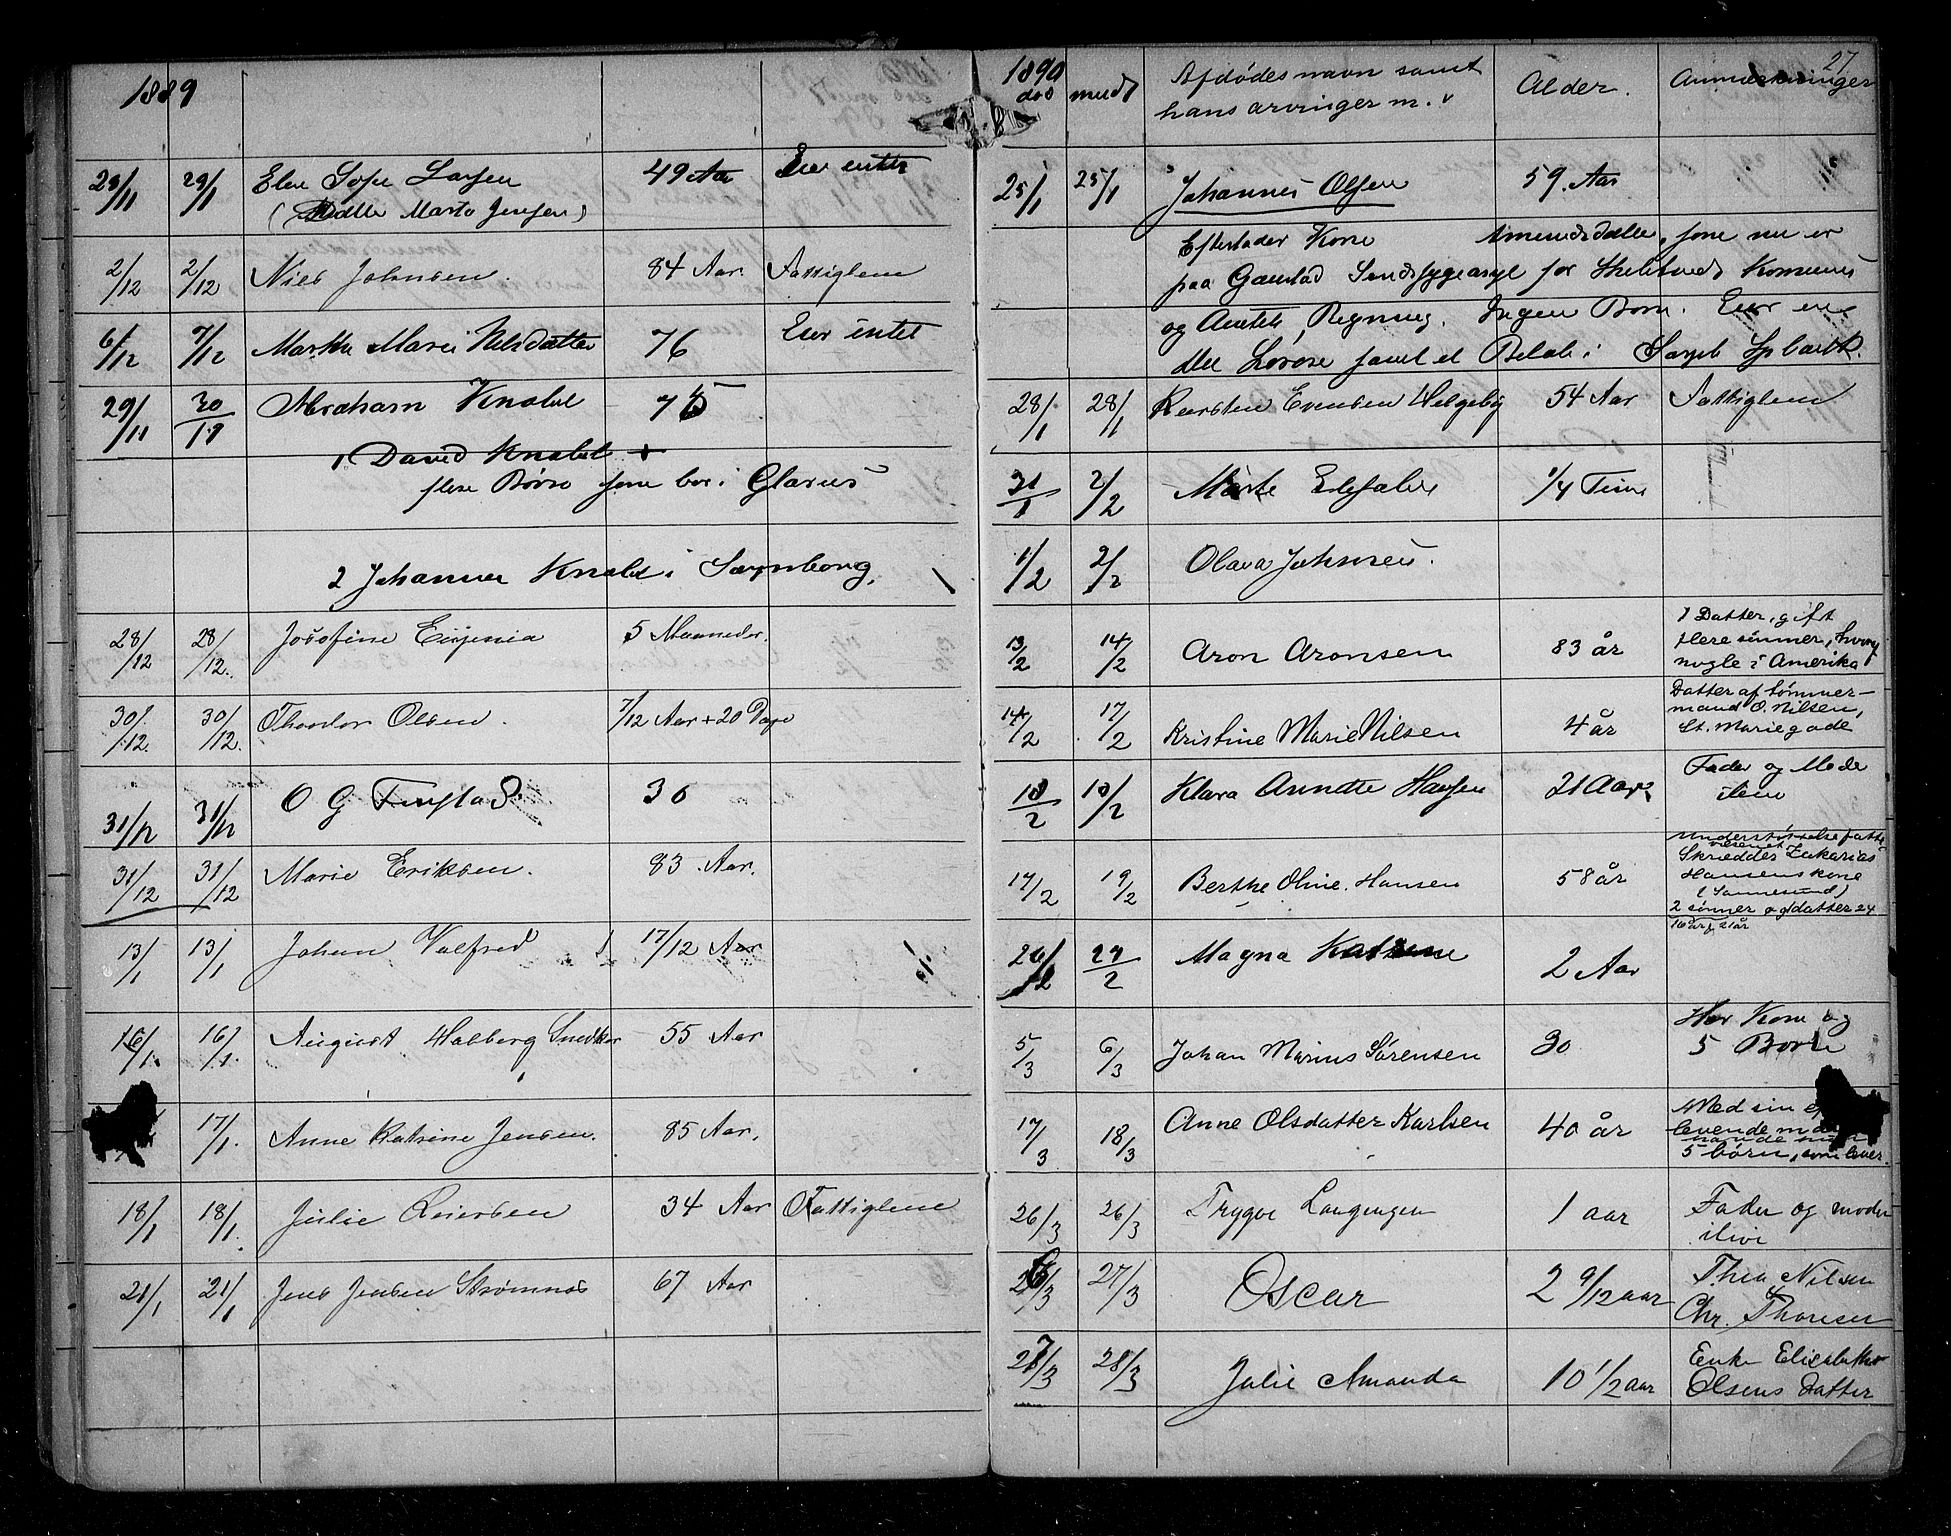 1889
28/11 29/1 Elen Sofie Larsen 49 Aar Eier intet
( datter Marta Jensen)
2/12 2/12 Niels Johnsen. 84 Aar Fattiglem
6/12 7/12 Martha Marie Nelsdatter 76 Eier intet
29/11 30/11 Abraham Knabel 75
1 David Knabel +
flere Børn som bor i Glarus
2 Johannes Knabel i Sarpsborg,
28/12 28/12. Josefine Eugenia 5 Maaneder.
30/12. 30/12. Theodor Olsen. 7/12 Aar + 20 Dage
31/12 31/12 O G 36
31/12 31/12 Marie Eriksen. 83 Aar.
13/1 13/1 Johan Valfred 17/12 Aar
16/1. 16/1. August Halberg Snedker 55 Aar
17/1. Anne Katrine Jensen. 85 Aar.
18/1 18/1. Julie Reiersen 34 Aar Fattiglem
21/1 21/1 Jens Jensen Strømnes 67 Aar
27
1890
død meldt Afdødes navn samt Alder. Anmærkninger
hans arvinger m. v
25/1 25/1 Johannes Olsen 59 Aar
Efterlader Kone Amundsdatter, som nu er
paa Gaustad Sindsygeasyl for Skebergs Kommunes
og Amtets Regning. Ingen Børn. Eier en
del Løsøre samt et Beløb i Sarpsb Spbank.
28/1 28/1 Karsten Evensen Helgeby 54 Aar Fattiglem
31/1 2/2 Marte 1/4 Time
1/2 2/2 Olava Johnsen.
13/2 14/2 Aron Aronsen 83 år 1 Datter, gift
flere sønner, hvoraf
nogle i Amerika
14/2 17/2 Kristine Marie Nilsen 4 år Datter af tømmer-
mand O. Nilsen,
St. Mariegade
18/2 18/2 Klara Annette Hansen 21 Aar Fader og Moder
ilive
17/2 19/2 Berthe Oline Hansen 58 år understøttelse fatt-
væsenet
Skrædder Zakarias
Hansens kone
(Sannesund)
2 sønner og 1 datter 24
16 år, 21 år
26/2 27/2 Magna Katrine 2 Aar
5/3 6/3 Johan Marius Sørensen 30 Har Kone og
5 Børn
17/3 18/3 Anne Olsdatter Karlsen 40 år Med sin
levende
5 børn, som lever.
26/3 26/3 Trygve Langengen 1 aar Fader og moder
ilive
26/3 27/3 Oscar 2 9/12 aar Thea Nilsen
Chr. Thoresen
27/3 28/3 Julie Amanda 10 1/2 aar Enke Elisabeth
Olsens datter